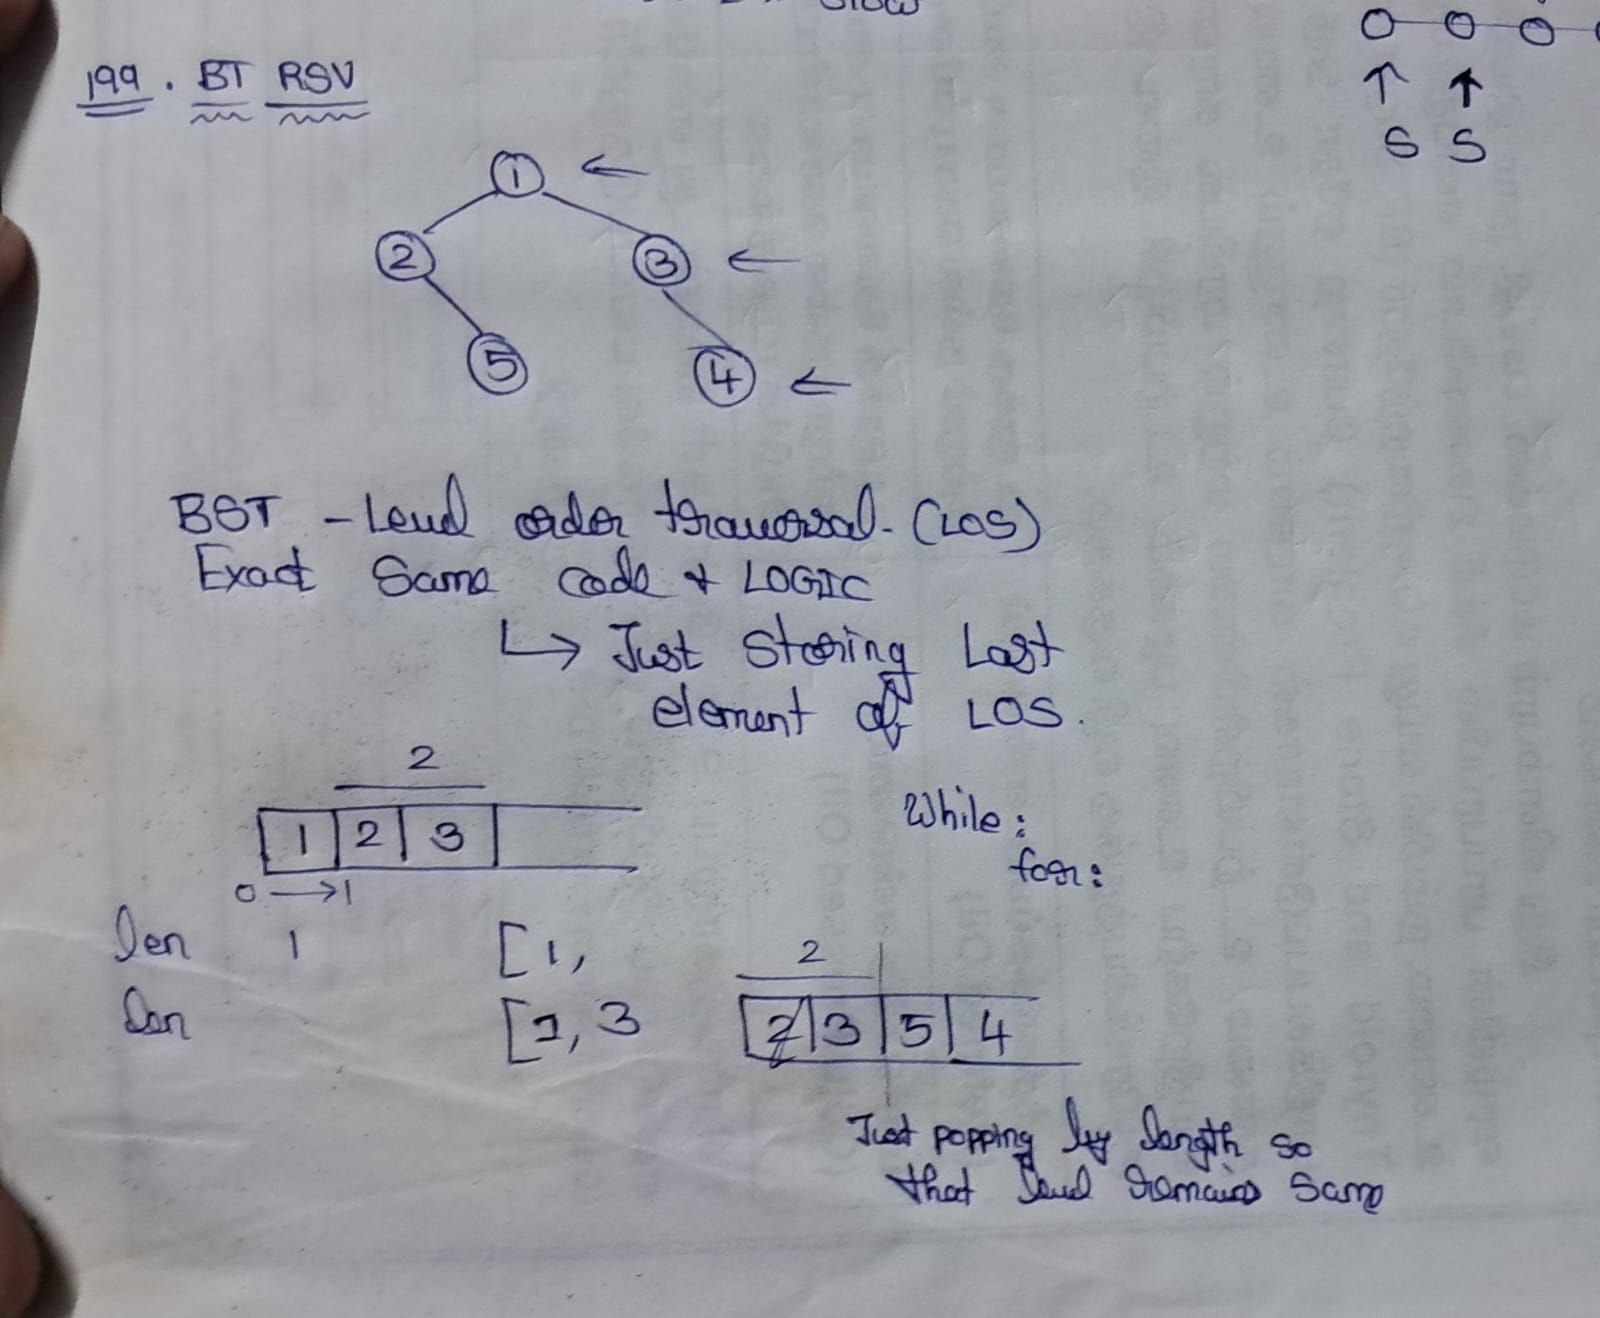 slow
199. BT RSV
S S
1 ←
2
3 ←
5
4 ←
BST - Level order traversal - (LOS)
Exact Same code & LOGIC
↳ Just Storing Last
element of LOS.
2
1 2 3
0 → 1
While :
for :
len 1 [1,
len [1, 3
2
2 3 5 4
Just popping by length so
that level remains Same